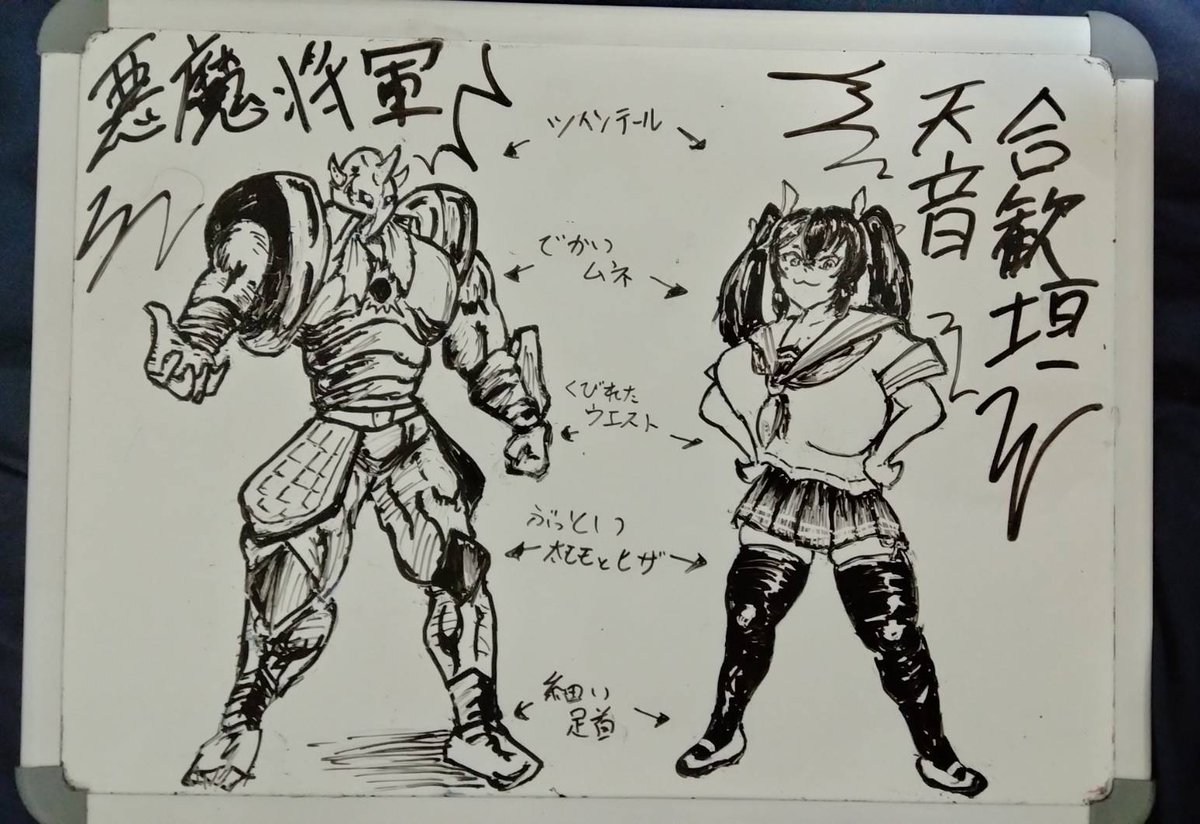 悪魔将軍
合歓垣
天音
ツインテール
でかい
ムネ
くびれた
ウエスト
ぶっとい
太モモとヒザ
細い
足首